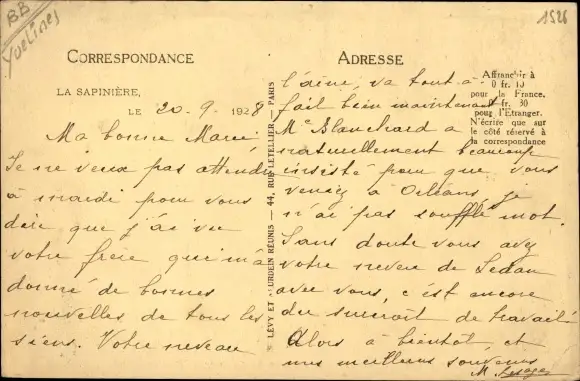 BB
Yvelines
1526
CORRESPONDANCE
LA SAPINIÈRE,
LE 20.9.1928
Ma bonne Marie
Je ne veux pas attendre
à mardi pour vous
dire que j'ai vu
votre frère qui m'a
donné de bonnes
nouvelles de tous les
siens. Votre neveau
LÉVY ET NEURDEIN RÉUNIS — 44, RUE LETELLIER — PARIS
ADRESSE
Affranchir à
0 fr. 10
pour la France.
0 fr. 30
pour l'Etranger.
N'écrire que sur
le côté réservé à
la correspondance
l'aîné, va tout à
fait bien maintenant
Me Blanchard a
naturellement beaucoup
insisté pour que vous
veniez à Orléans, je
n'ai pas soufflé mot.
Sans doute vous avez
votre neveu de Sedan
avec vous, c'est encore
du surcroit de travail
Alors à bientôt, et
mes meilleurs souvenirs
M.